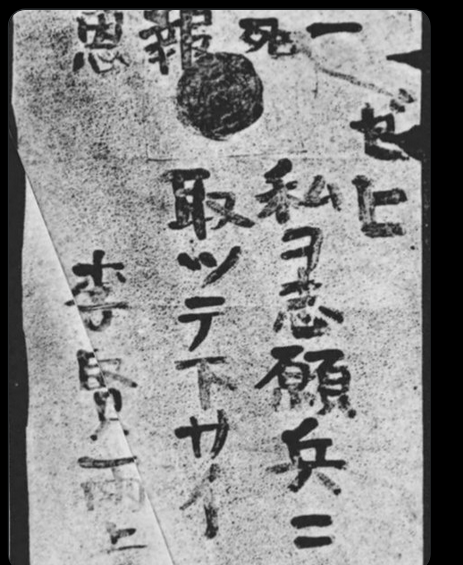 一死報恩
ゼヒ
私ヲ志願兵ニ
取ツテ下サイ
李賢雨上